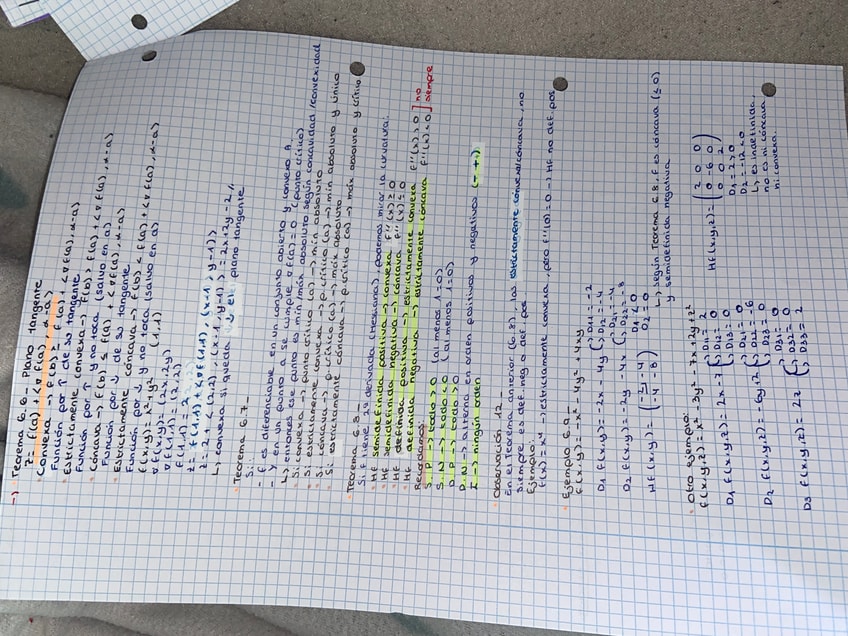 → Teorema 6.6 - Plano tangente
z = f(a) + <∇f(a), x-a>
· Convexa → f(b) ≥ f(a) + <∇f(a), x-a>
Función por ↑ de su tangente
· Estrictamente convexa → f(b) > f(a) + <∇f(a), x-a>
Función por ↑ y no toca (salvo en a)
· Cóncava → f(b) ≤ f(a) + <∇f(a), x-a>
Función por ↓ de su tangente
· Estrictamente cóncava → f(b) < f(a) + <∇f(a), x-a>
Función por ↓ y no toca (salvo en a)
f(x,y) = x²+y² (1,1)
∇f(x,y) = (2x,2y)
∇f(1,1) = (2,2)
f(1,1) = 2
z = f(1,1) + <∇f(1,1), (x-1, y-1)>
z = 2 + <(2,2), (x-1, y-1)> = 2x+2y-2 //
↳ convexa si queda ↓ el plano tangente
· Teorema 6.7 -
Si:
- f es diferenciable en un conjunto abierto y convexo A.
- y en un punto a se cumple ∇f(a)=0 (punto crítico)
↳ entonces ese punto es mín/máx absoluto según concavidad/convexidad
· Si convexa → punto crítico (a) → mín absoluto
· Si estrictamente convexa → p.crítico (a) → mín absoluto y único
· Si cóncava → p.crítico (a) → máx absoluto
· Si estrictamente cóncava → p.crítico (a) → máx absoluto y único
· Teorema 6.8 -
Si f tiene 2ª derivada (Hessiana), podemos mirar la curvatura:
· Hf semidefinida positiva → convexa f''(x) ≥ 0
· Hf semidefinida negativa → cóncava f''(x) ≤ 0
· Hf definida positiva → estrictamente convexa f''(x) > 0 ] no
· Hf definida negativa → estrictamente cóncava f''(x) < 0 ] siempre
Recordamos:
S.P → todo ≥ 0 (al menos 1=0)
S.N → todo ≤ 0 (al menos 1=0)
D.P → todo > 0
D.N → alterna en orden positivos y negativos (-, +, ...)
I → ningún orden
· Observación 12 -
En el Teorema anterior (6.8), las estrictamente convexa/cóncava, no
siempre es def. neg o def. pos
Ejemplo:
f(x) = x⁴ → estrictamente convexa, pero f''(0)=0 → Hf no def. pos
· Ejemplo 6.9 -
f(x,y) = -x² - 4y² + 4xy
D1 f(x,y) = -2x - 4y {; D11 = -2
; D12 = -4
D2 f(x,y) = -2y - 4x {; D21 = -4
; D22 = -8
Hf(x,y) = (-2 -4
-4 -8) D1 < 0
D2 = 0
↳ según Teorema 6.8. f es cóncava (≤ 0)
y semidefinida negativa
· Otro ejemplo:
f(x,y,z) = x² - 3y² - 7x + 2y + z²
D1 f(x,y,z) = 2x - 7 {; D11 = 2
; D12 = 0
; D13 = 0
D2 f(x,y,z) = -6y + 2 {; D21 = 0
; D22 = -6
; D23 = 0
D3 f(x,y,z) = 2z {; D31 = 0
; D32 = 0
; D33 = 2
Hf(x,y,z) = (2 0 0
0 -6 0
0 0 2)
D1 = 2 > 0
D2 = -12 < 0
↳ es indefinida,
no es ni cóncava
ni convexa.